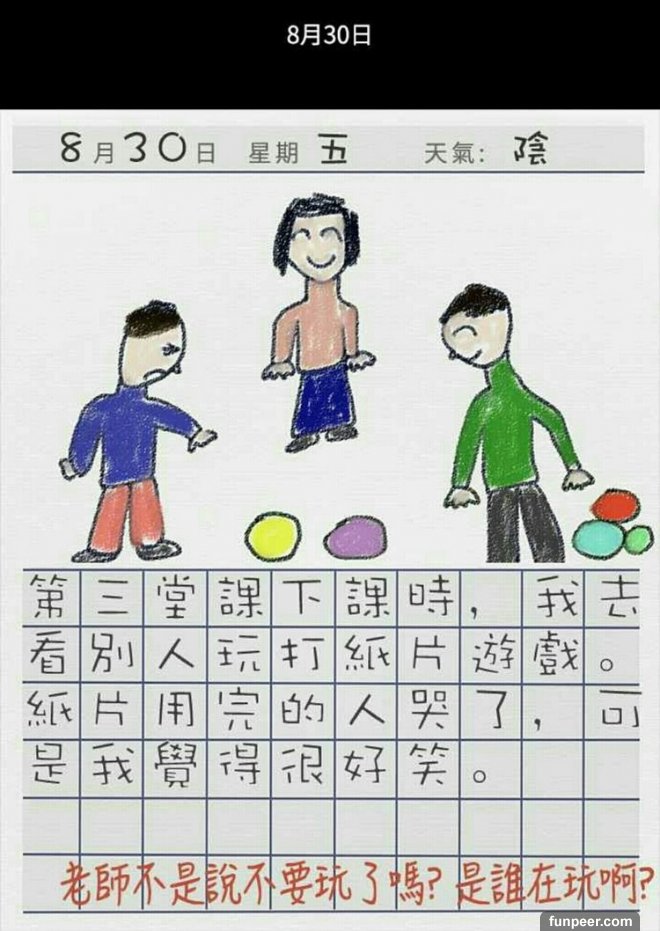 8月30日
8月30日 星期 五 天氣: 陰
第三堂課下課時，我去
看別人玩打紙片遊戲。
紙片用完的人哭了，可
是我覺得很好笑。
老師不是說不要玩了嗎? 是誰在玩啊?
funpeer.com